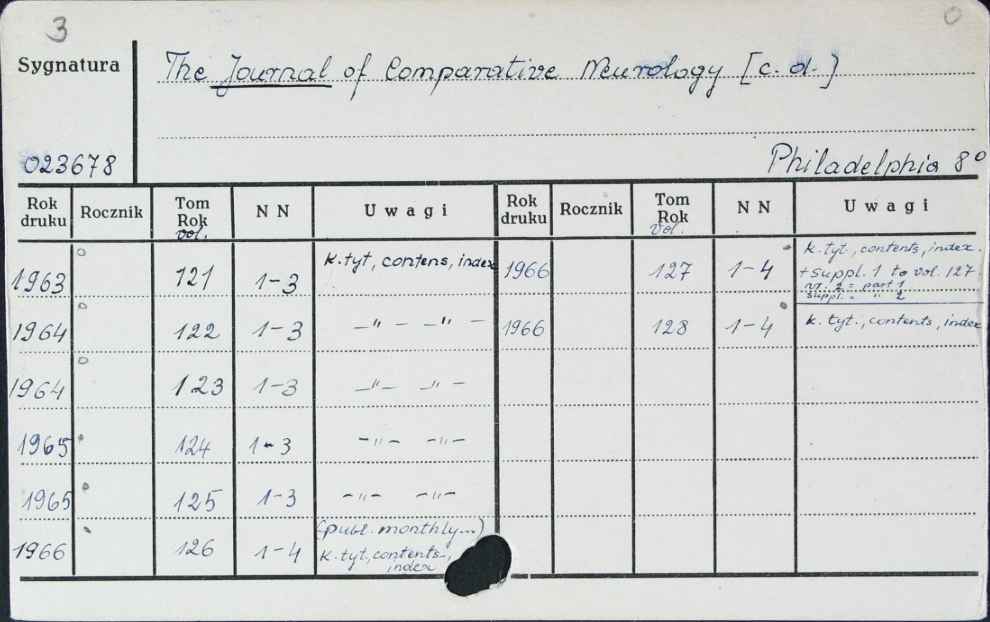 3
0
Sygnatura
The Journal of Comparative Neurology [c. d.]
023678
Philadelphia 8°
Rok druku Rocznik Tom Rok vol. N N Uwagi Rok druku Rocznik Tom Rok Vol. N N Uwagi
1963 121 1-3 k.tyt, contens, index
1964 122 1-3 —"— —"—
1964 123 1-3 —"— —"—
1965 124 1-3 —"— —"—
1965 125 1-3 —"— —"—
1966 126 1-4 (publ. monthly...)
k.tyt, contents, index
1966 127 1-4 k. tyt, contents, index.
+ suppl. 1 to vol. 127.
nr. 2 = part 1
suppl. " " 2
1966 128 1-4 k. tyt., contents, index